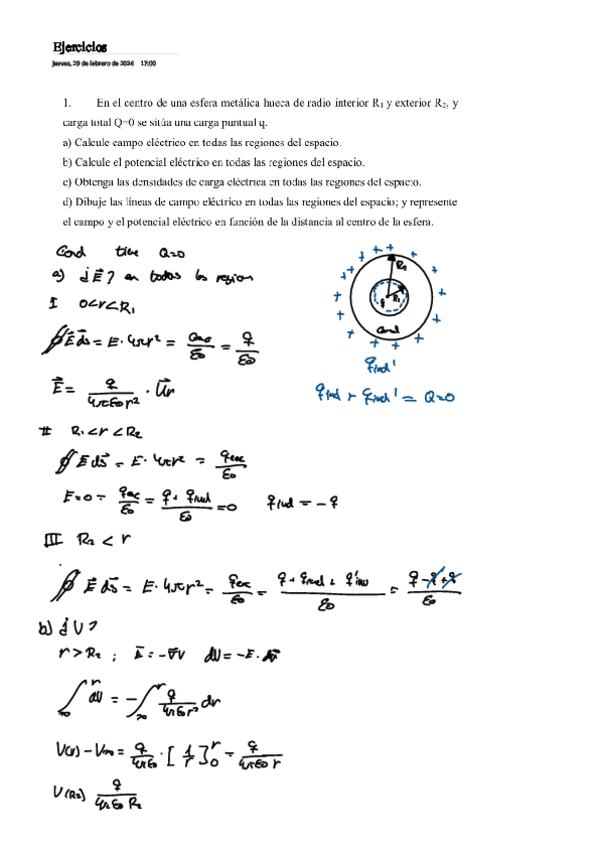 Ejercicios
jueves, 29 de febrero de 2024 17:00
1. En el centro de una esfera metálica hueca de radio interior R₁ y exterior R₂, y
carga total Q=0 se sitúa una carga puntual q.
a) Calcule campo eléctrico en todas las regiones del espacio.
b) Calcule el potencial eléctrico en todas las regiones del espacio.
c) Obtenga las densidades de carga eléctrica en todas las regiones del espacio.
d) Dibuje las líneas de campo eléctrico en todas las regiones del espacio; y represente
el campo y el potencial eléctrico en función de la distancia al centro de la esfera.
Cond tiene Q=0
a) ¿E⃗? en todas las region
I 0<r<R₁
∮E⃗ds = E·4πr² = qenc/ε₀ = q/ε₀
E⃗ = q/4πε₀r² · U⃗r
R₂
R₁
q
Cond
qind'
qind + qind' = Q=0
II R₁<r<R₂
∮E ds⃗ = E·4πr² = qenc/ε₀
E=0 = qenc/ε₀ = q+qind/ε₀ =0 qind = -q
III R₂ < r
∮E⃗ ds⃗ = E·4πr² = qenc/ε₀ = q+qind+q'ind/ε₀ = q-q+q/ε₀
b) ¿V?
r>R₂ ; E⃗=-∇V dV=-E·dr⃗
∫∞^r dV = -∫∞^r q/4πε₀r² dr
V(r)-V∞ = q/4πε₀ ·[1/r]₀^r = q/4πε₀r
V(R₂) q/4πε₀R₂